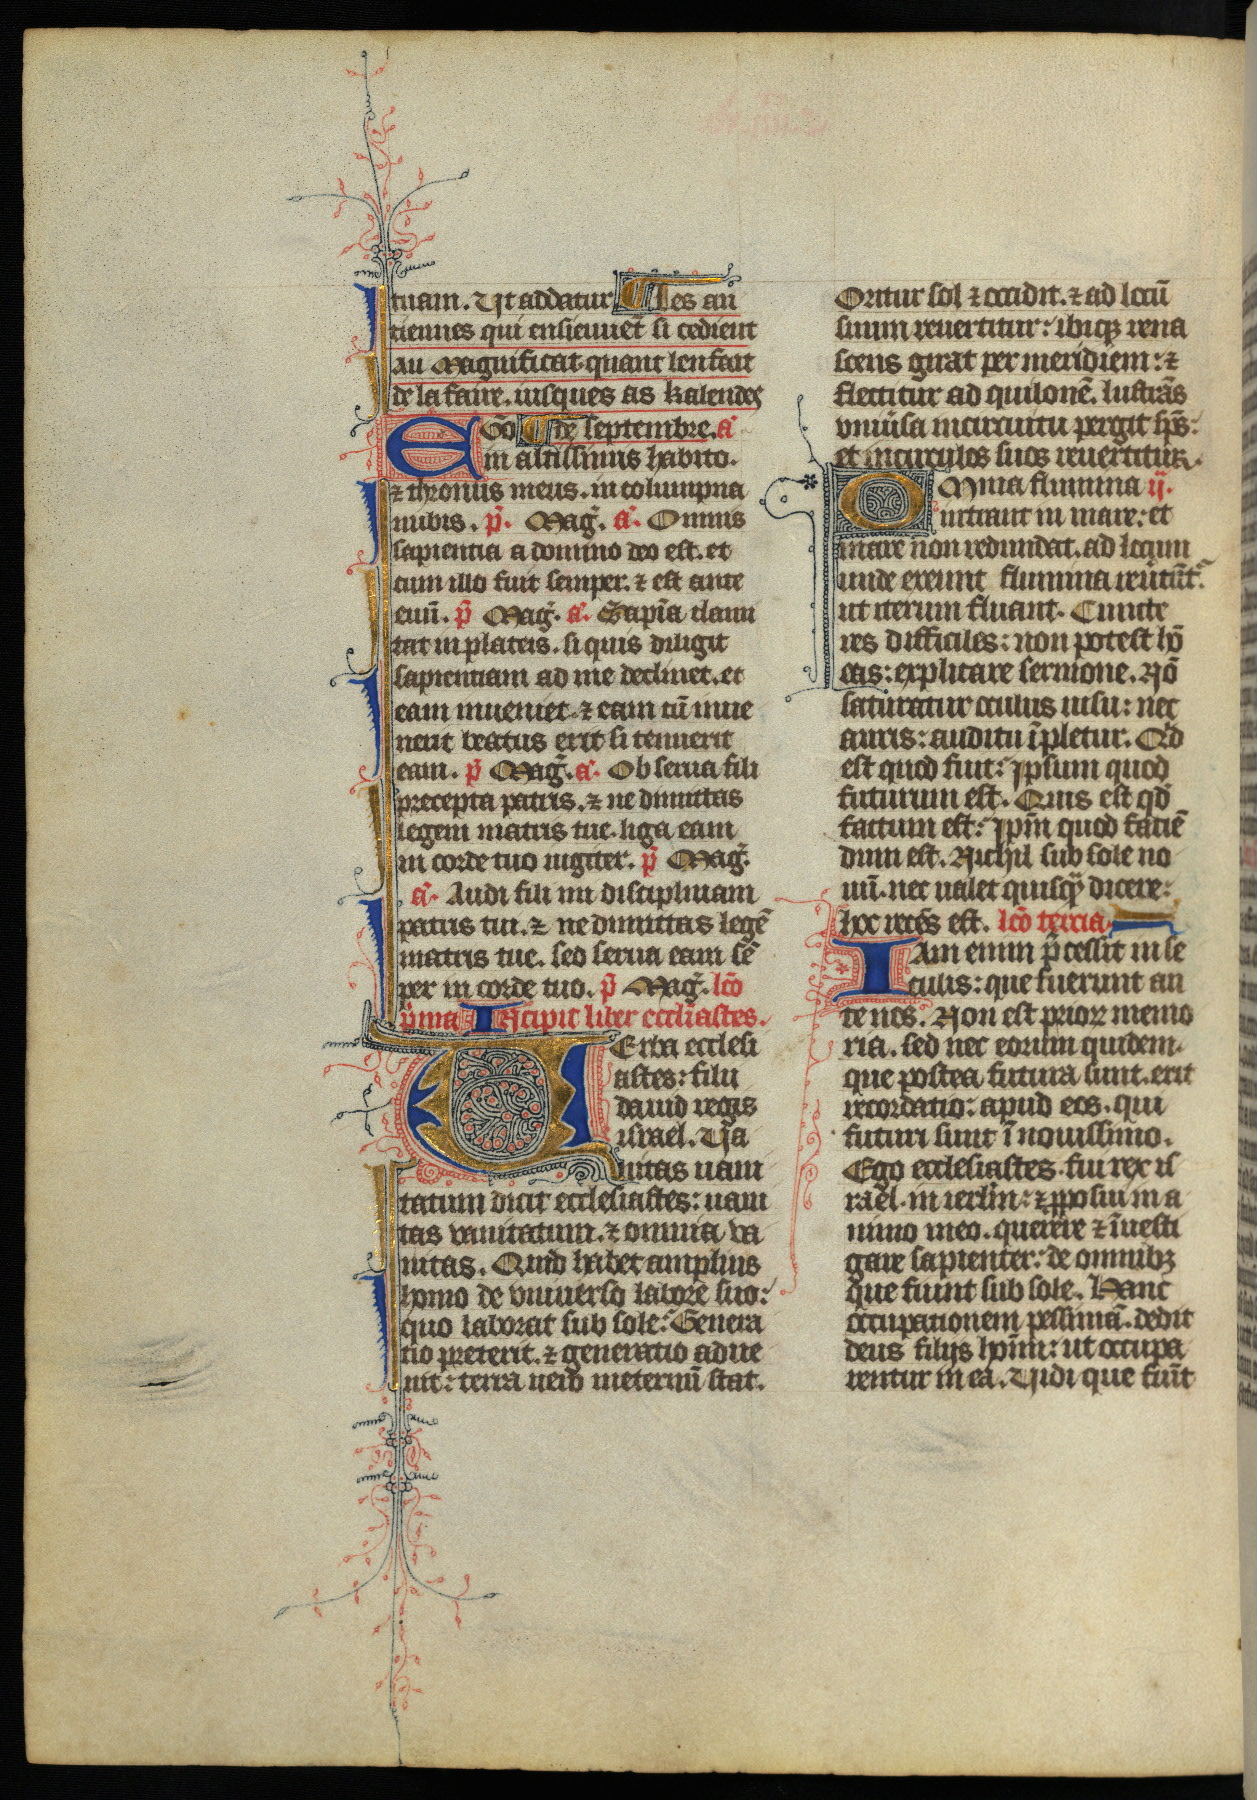 tuam. Ut addatur Les an
tiennes qui ensieuuēt si cedient
au Magnificat quant len fait
de la faire. iusques as kalendes
EGō de septembre. a
in altissimis habito.
⁊ thronus meus. in columpna
nubis. p̄. Mag̃. a. Omnis
sapientia a domino deo est. et
cum illo fuit semper. ⁊ est ante
euū. p̄ Mag̃. a. Sapīa clami
tat in plateis. si quis diligit
sapientiam ad me declinet. et
eam inueniet. ⁊ eam cū inue
nerit beatus erit si tenuerit
eam. p̄ Mag̃. a. Obserua fili
precepta patris. ⁊ ne dimittas
legem matris tue. liga eam
in corde tuo iugiter. p̄ Mag̃.
a. Audi fili mi disciplinam
patris tui. ⁊ ne dimittas legē
matris tue. sed serua eam sē
per in corde tuo. p̄ Mag̃. lc̄o
p̄ma Incipit liber eccl̄iastes.
VErba ecclesi
astes: filii
dauid regis
israel. Va
nitas uani
tatum dicit ecclesiastes: uani
tas vanitatum. ⁊ omnia va
nitas. Quid habet amplius
homo de vniuerso labore suo:
quo laborat sub sole: Genera
tio preterit. ⁊ generatio adue
nit: terra uero ineternū stat.
Oritur sol ⁊ occidit. ⁊ ad locū
suum reuertitur: ibiqꝫ rena
scens girat per meridiem: ⁊
flectitur ad quilonē. lustrās
vniūsa in circuitu pergit sp̄s:
et in circulos suos reuertitur.
OMnia flumina ij.
intrant in mare: et
mare non redundat. ad locum
unde exeunt flumina reūtūt᷑
ut iterum fluant. Cuncte
res difficiles: non potest hō
eas: explicare sermone. Nō
saturatur oculus uisu: nec
auris: auditu īpletur. Qd̄
est quod fuit: Ipsum quod
futurum est. Quis est qd̄
factum est: Ip̄m quod faciē
dum est. Nichil sub sole no
uū. nec ualet quisq̄ dicere:
hoc recēs est. lc̄o tercia
IAm enim p̄cessit in se
culis: que fuerunt an
te nos. Non est priorꝝ memo
ria. sed nec eorum quidem.
que postea futura sunt. erit
recordatio: apud eos. qui
futuri sunt ī nouissimo.
Ego ecclesiastes. fui rex is
rael. in ierl̄m: ⁊ p̄posui in a
nimo meo. querere ⁊ īuesti
gare sapienter: de omnibꝫ
que fiunt sub sole. Hanc
occupationem pessimā. dedit
deus filijs hoīm: ut occupa
rentur in ea. Vidi que fiūt